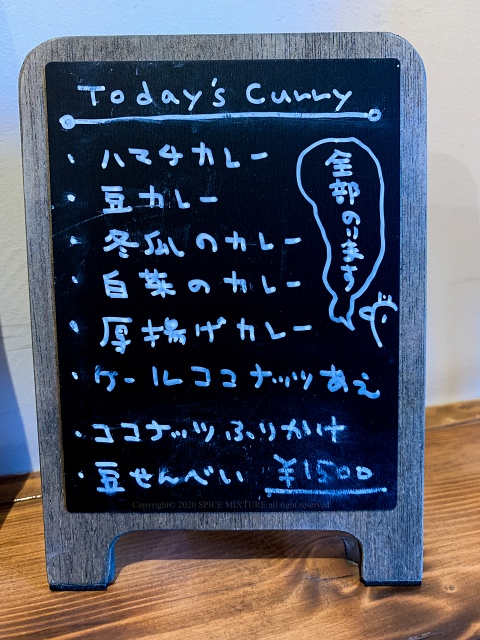 Today's Curry
・ハマチカレー
・豆カレー
・冬瓜のカレー
・白菜のカレー
・厚揚げカレー
・ケールココナッツあえ
・ココナッツふりかけ
・豆せんべい ¥1500
全部のります
Copyright© 2020 SPICE MIXTURE all right reserved